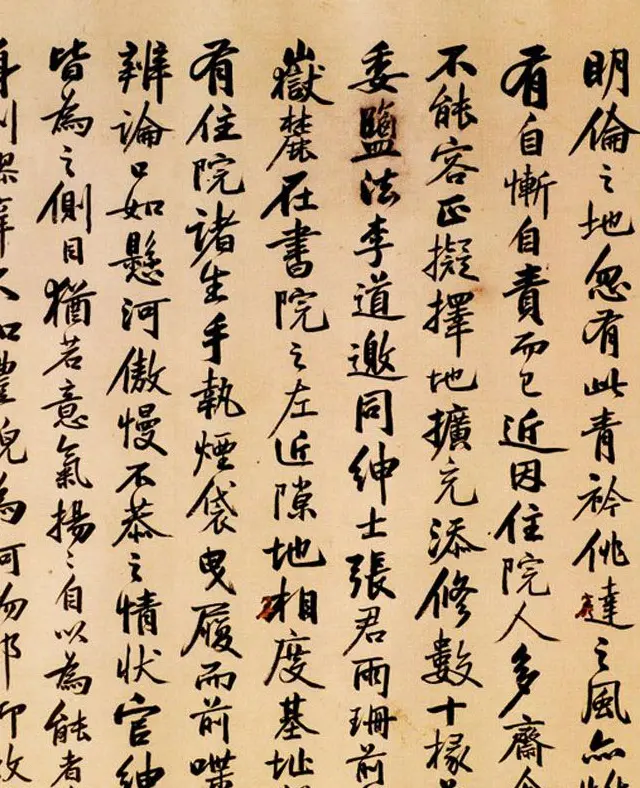 明倫之地忽有此青衿佻達之風亦惟
有自慚自責而已近因住院人多齋舍
不能容正擬擇地擴充添修數十椽
委鹽法李道邀同紳士張君雨珊前
嶽麓在書院之左近隙地相度基址
有住院諸生手執煙袋曳履而前喋
辨論口如懸河傲慢不恭之情狀官紳
皆為之側目猶若意氣揚〻自以為能者
不知禮貌為何物耶即改